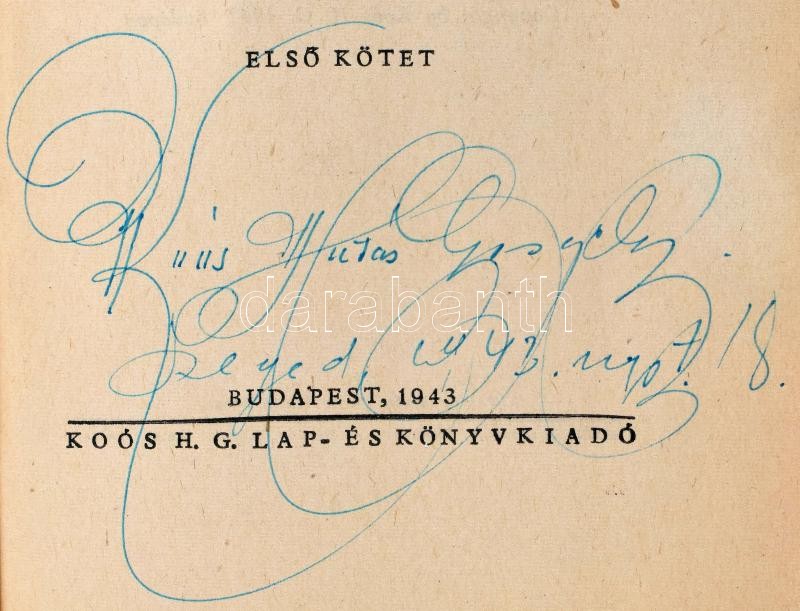 ELSŐ KÖTET
Koós Hutás Gergely.
Szeged, 1943. szept. 18.
darabanth
BUDAPEST, 1943
KOÓS H. G. LAP- ÉS KÖNYVKIADÓ